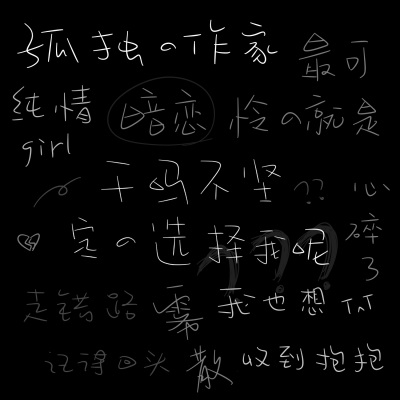 孤独の作家 最可
纯情 暗恋 怜の就是
girl
干吗不坚?? 心
定の选择我呢??? 碎
了
走错路 我也想
记得回头 散 收到抱抱